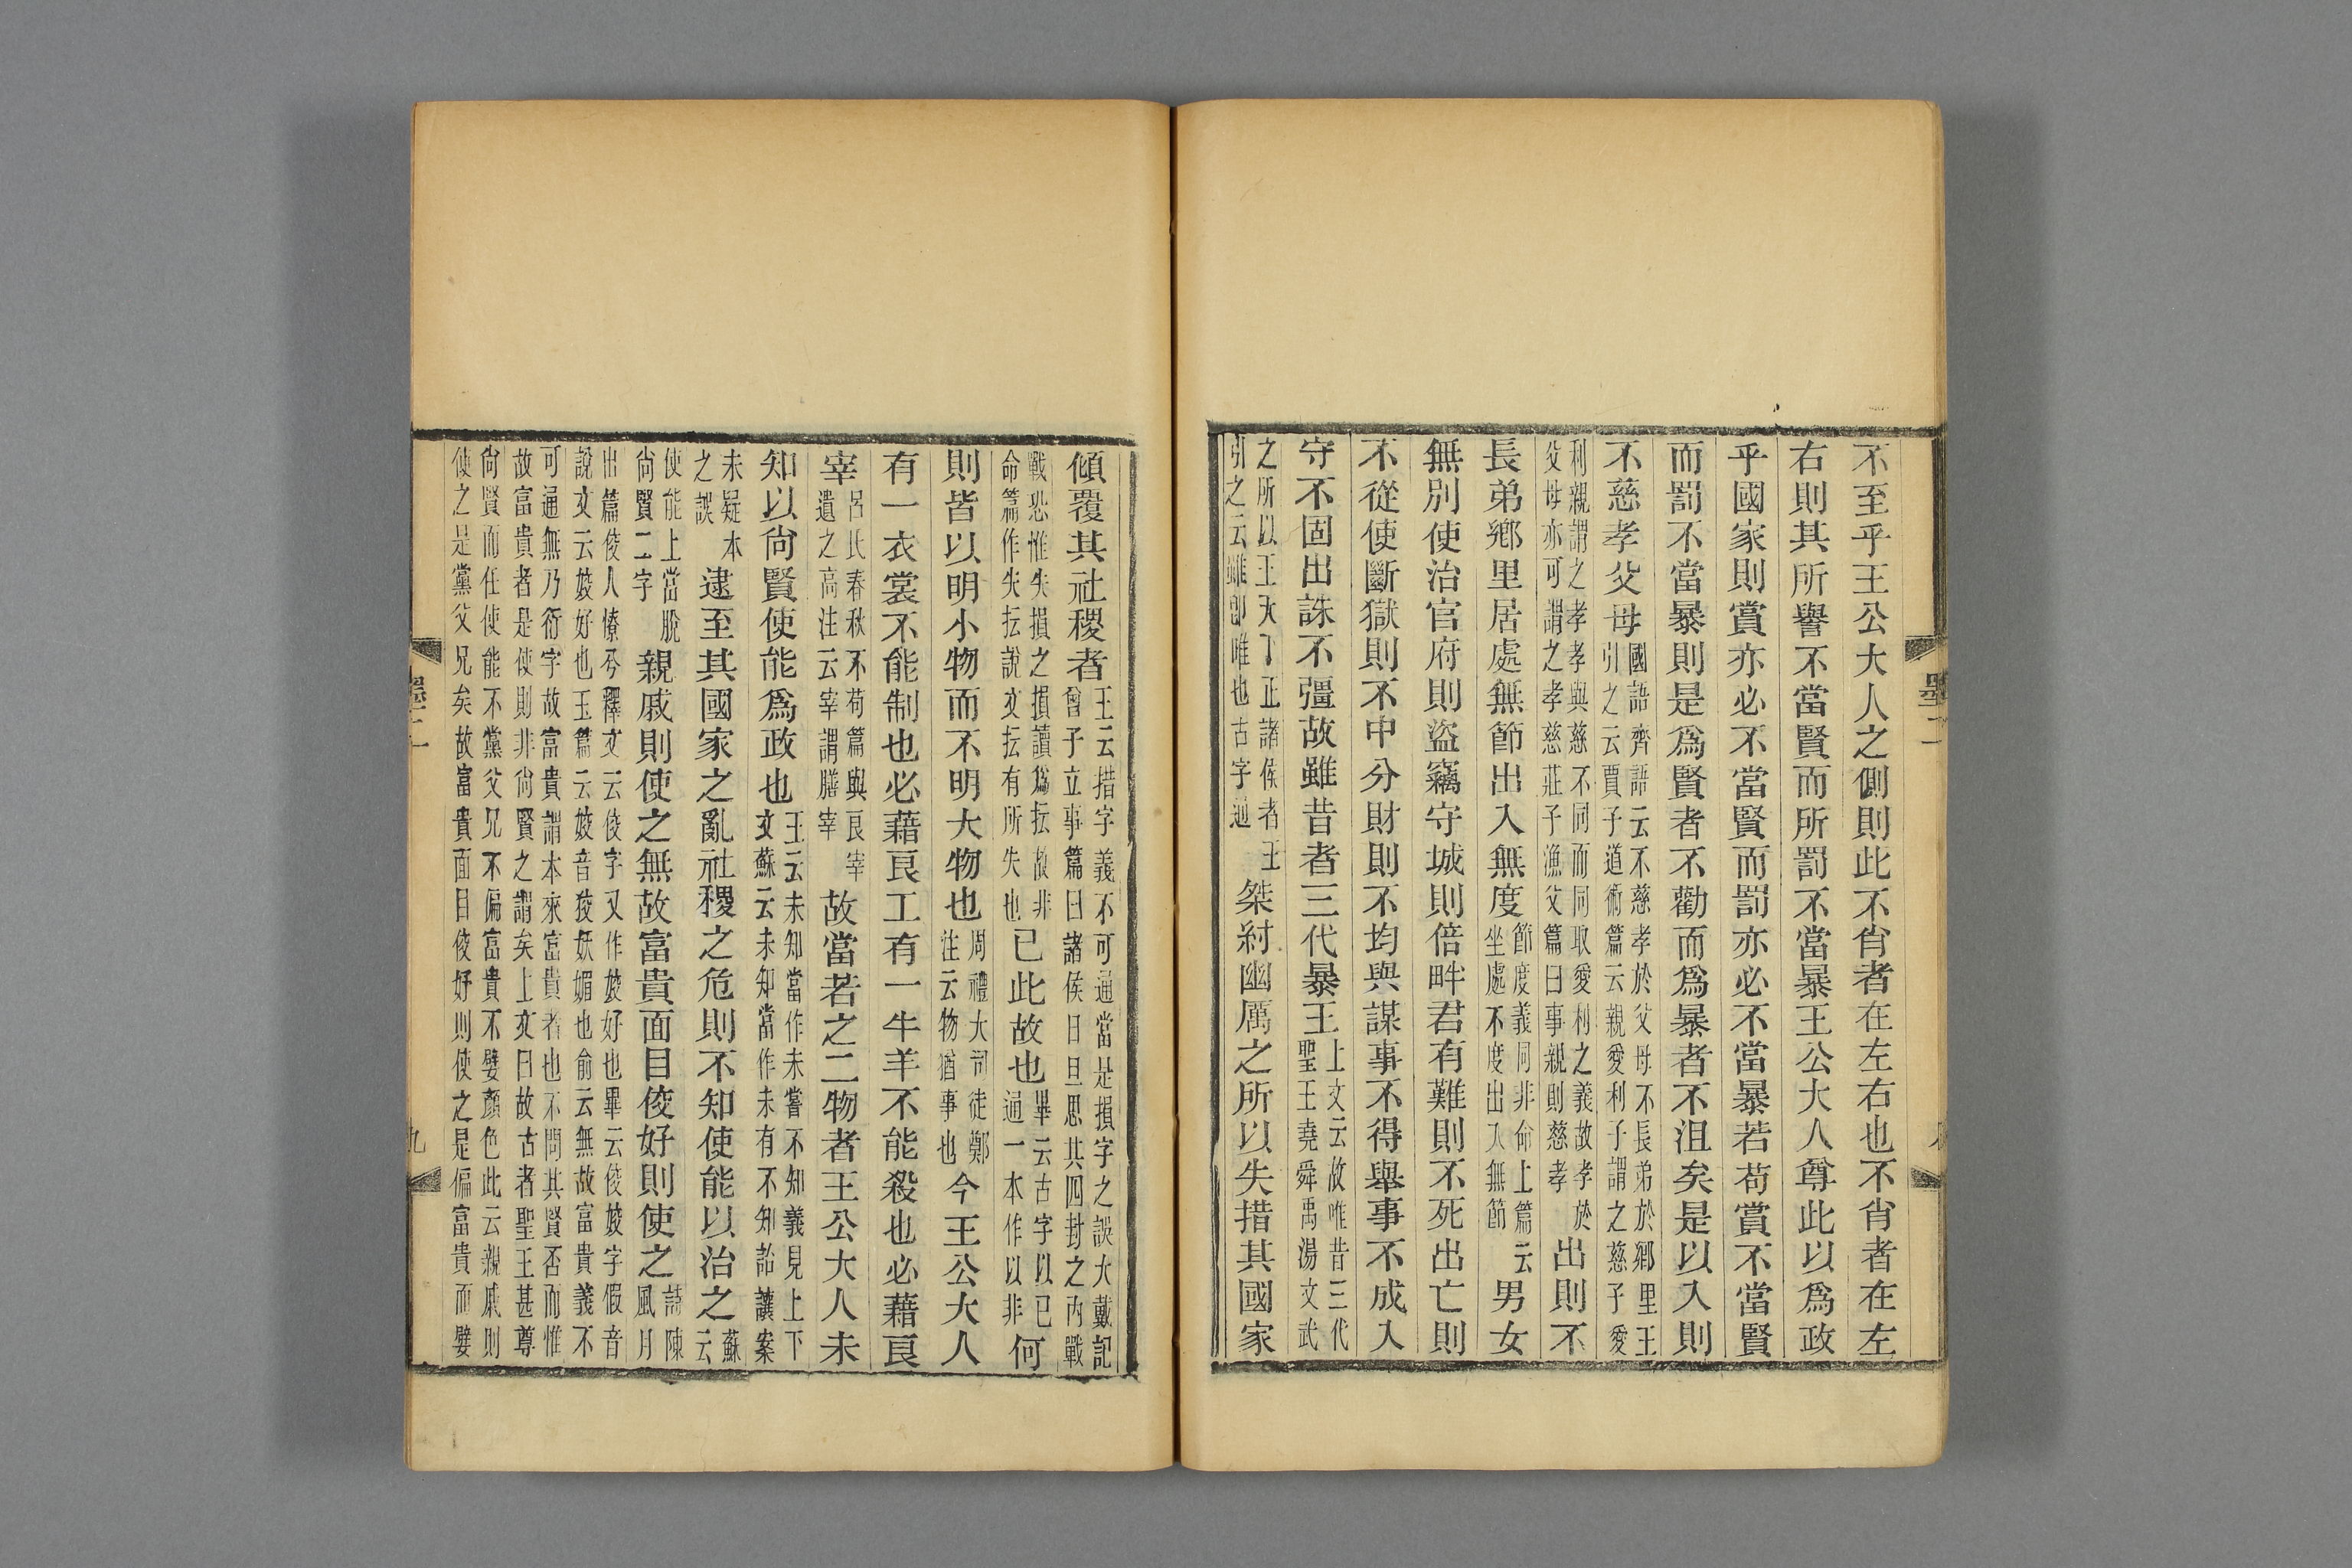 墨二
不至乎王公大人之側則此不肖者在左右也不肖者在左
右則其所譽不當賢而所罰不當暴王公大人尊此以爲政
乎國家則賞亦必不當賢而罰亦必不當暴若苟賞不當賢
而罰不當暴則是爲賢者不勸而爲暴者不沮矣是以入則
不慈孝父母國語齊語云不慈孝於父母不長弟於鄉里王引之云賈子道術篇云親愛利子謂之慈子愛
利親謂之孝孝與慈不同而同取愛利之義故孝於父母亦可謂之孝慈莊子漁父篇曰事親則慈孝出則不
長弟鄉里居處無節出入無度節度義同非命上篇云坐處不度出入無節男女
無別使治官府則盜竊守城則倍畔君有難則不死出亡則
不從使斷獄則不中分財則不均與謀事不得舉事不成入
守不固出誅不彊故雖昔者三代暴王上文云故唯昔三代聖王堯舜禹湯文武
之所以王天下正諸侯者王引之云雖卽唯也古字通桀紂幽厲之所以失措其國家
傾覆其社稷者王云措字義不可通當是損字之誤大戴記曾子立事篇曰諸侯日旦思其四封之內戰
戰恐惟失損之損讀爲抎故非命篇作失抎說文抎有所失也已此故也畢云古字以已通一本作以非何
則皆以明小物而不明大物也周禮大司徒鄭注云物猶事也今王公大人
有一衣裳不能制也必藉良工有一牛羊不能殺也必藉良
宰呂氏春秋不苟篇與良宰遺之高注云宰謂膳宰故當若之二物者王公大人未
知以尙賢使能爲政也王云未知當作未嘗不知義見上下文蘇云未知當作未有不知詒讓案
未疑本之誤逮至其國家之亂社稷之危則不知使能以治之蘇云
使能上當脫尙賢二字親戚則使之無故富貴面目佼好則使之詩陳風月
出篇佼人憭兮釋文云佼字又作姣好也畢云佼姣字假音說文云姣好也玉篇云姣音狡妖媚也俞云無故富貴義不
可通無乃衍字故富貴謂本來富貴者也不問其賢否而惟故富貴者是使則非尙賢之謂矣上文曰故古者聖王甚尊
尙賢而任使能不黨父兄不偏富貴不嬖顏色此云親戚則使之是黨父兄矣故富貴面目佼好則使之是偏富貴而嬖
墨二
九